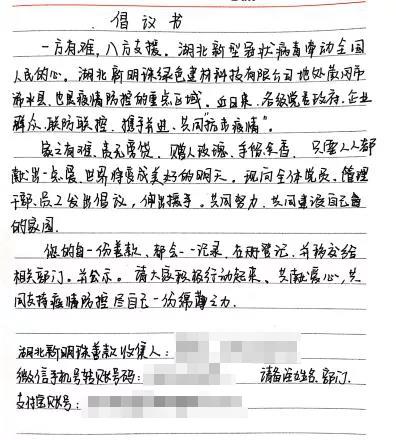 倡议书
一方有难，八方支援。湖北新型冠状病毒牵动全国
人民的心。湖北新明珠绿色建材科技有限公司地处黄冈市
浠水县，也是疫情防控的重点区域。近日来，各级党委政府、企业
群众、联防联控，携手并进、共同"抗击疫情"。
家之有难，责无旁贷，赠人玫瑰，手留余香，只要人人都
献出一点爱，世界将变成美好的明天。现向全体党员、管理
干部、员工发出倡议，伸出援手。共同努力，共同建设自己的
的家园。
您的每一份善款，都会一一记录，在册登记，并移交给
相关部门。并公示。请大家积极行动起来、共献爱心，共
同支持疫情防控尽自己一份绵薄之力。
湖北新明珠善款收集人：
微信手机号转账号码： 请备注姓名、部门
支付宝账号：